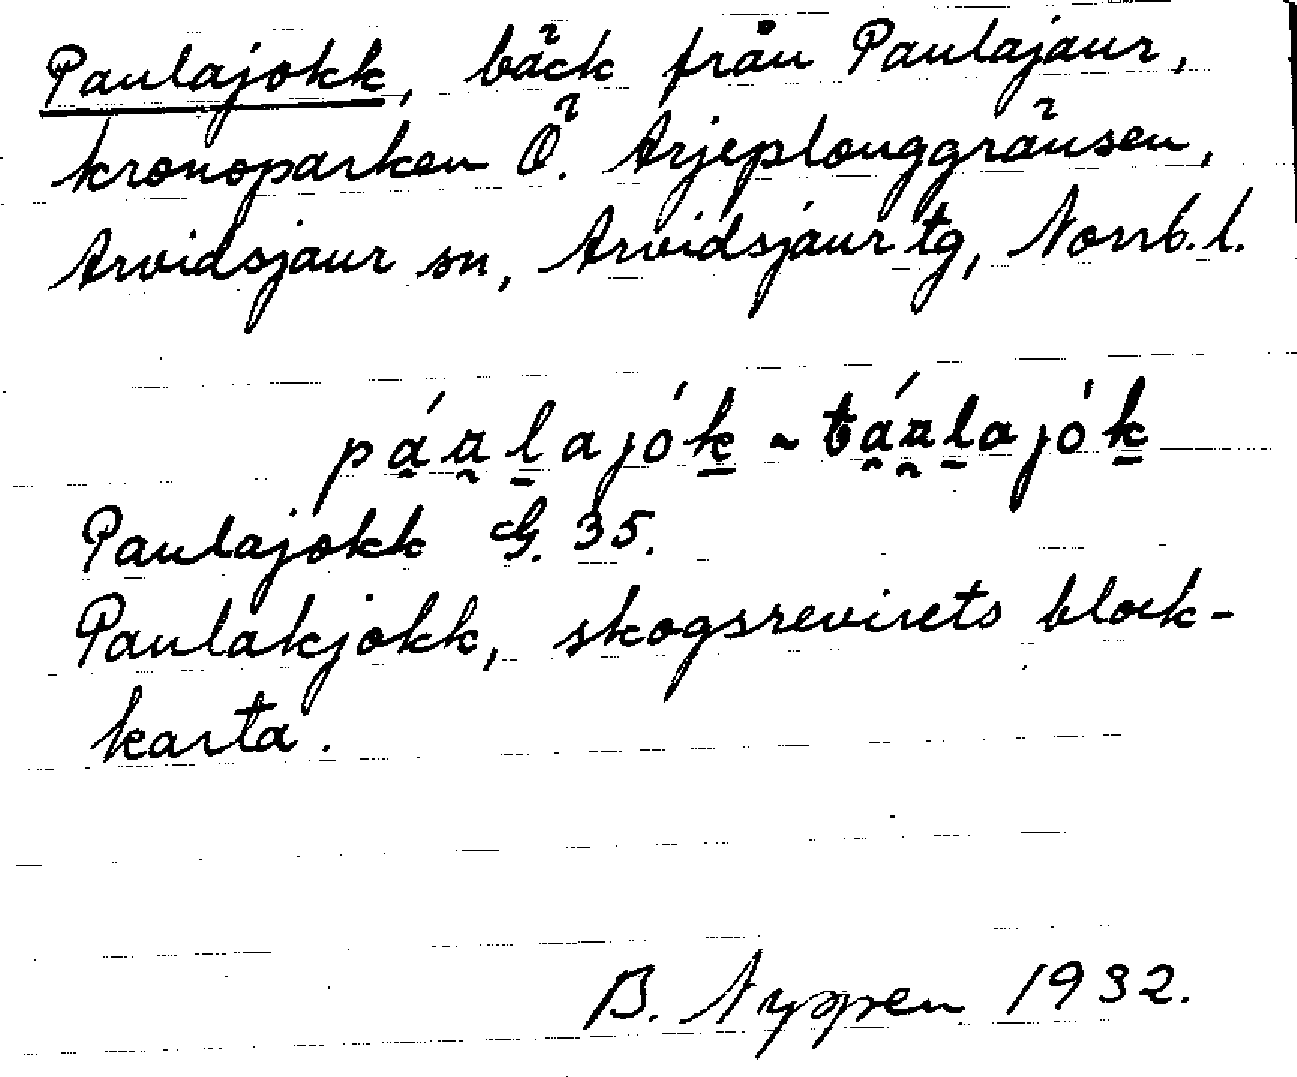 Paulajokk, bäck från Paulajaur,
kronoparken Ö. Arjeplouggränsen,
Arvidsjaur sn, Arvidsjaur tg, Norrb. l.
pá̭ṵl̠ajók̠ ~ tá̭ṵl̠ajók̠
Paulajokk G. 35.
Paulakjokk, skogsrevirets block-
karta.
B. Nyppen 1932.